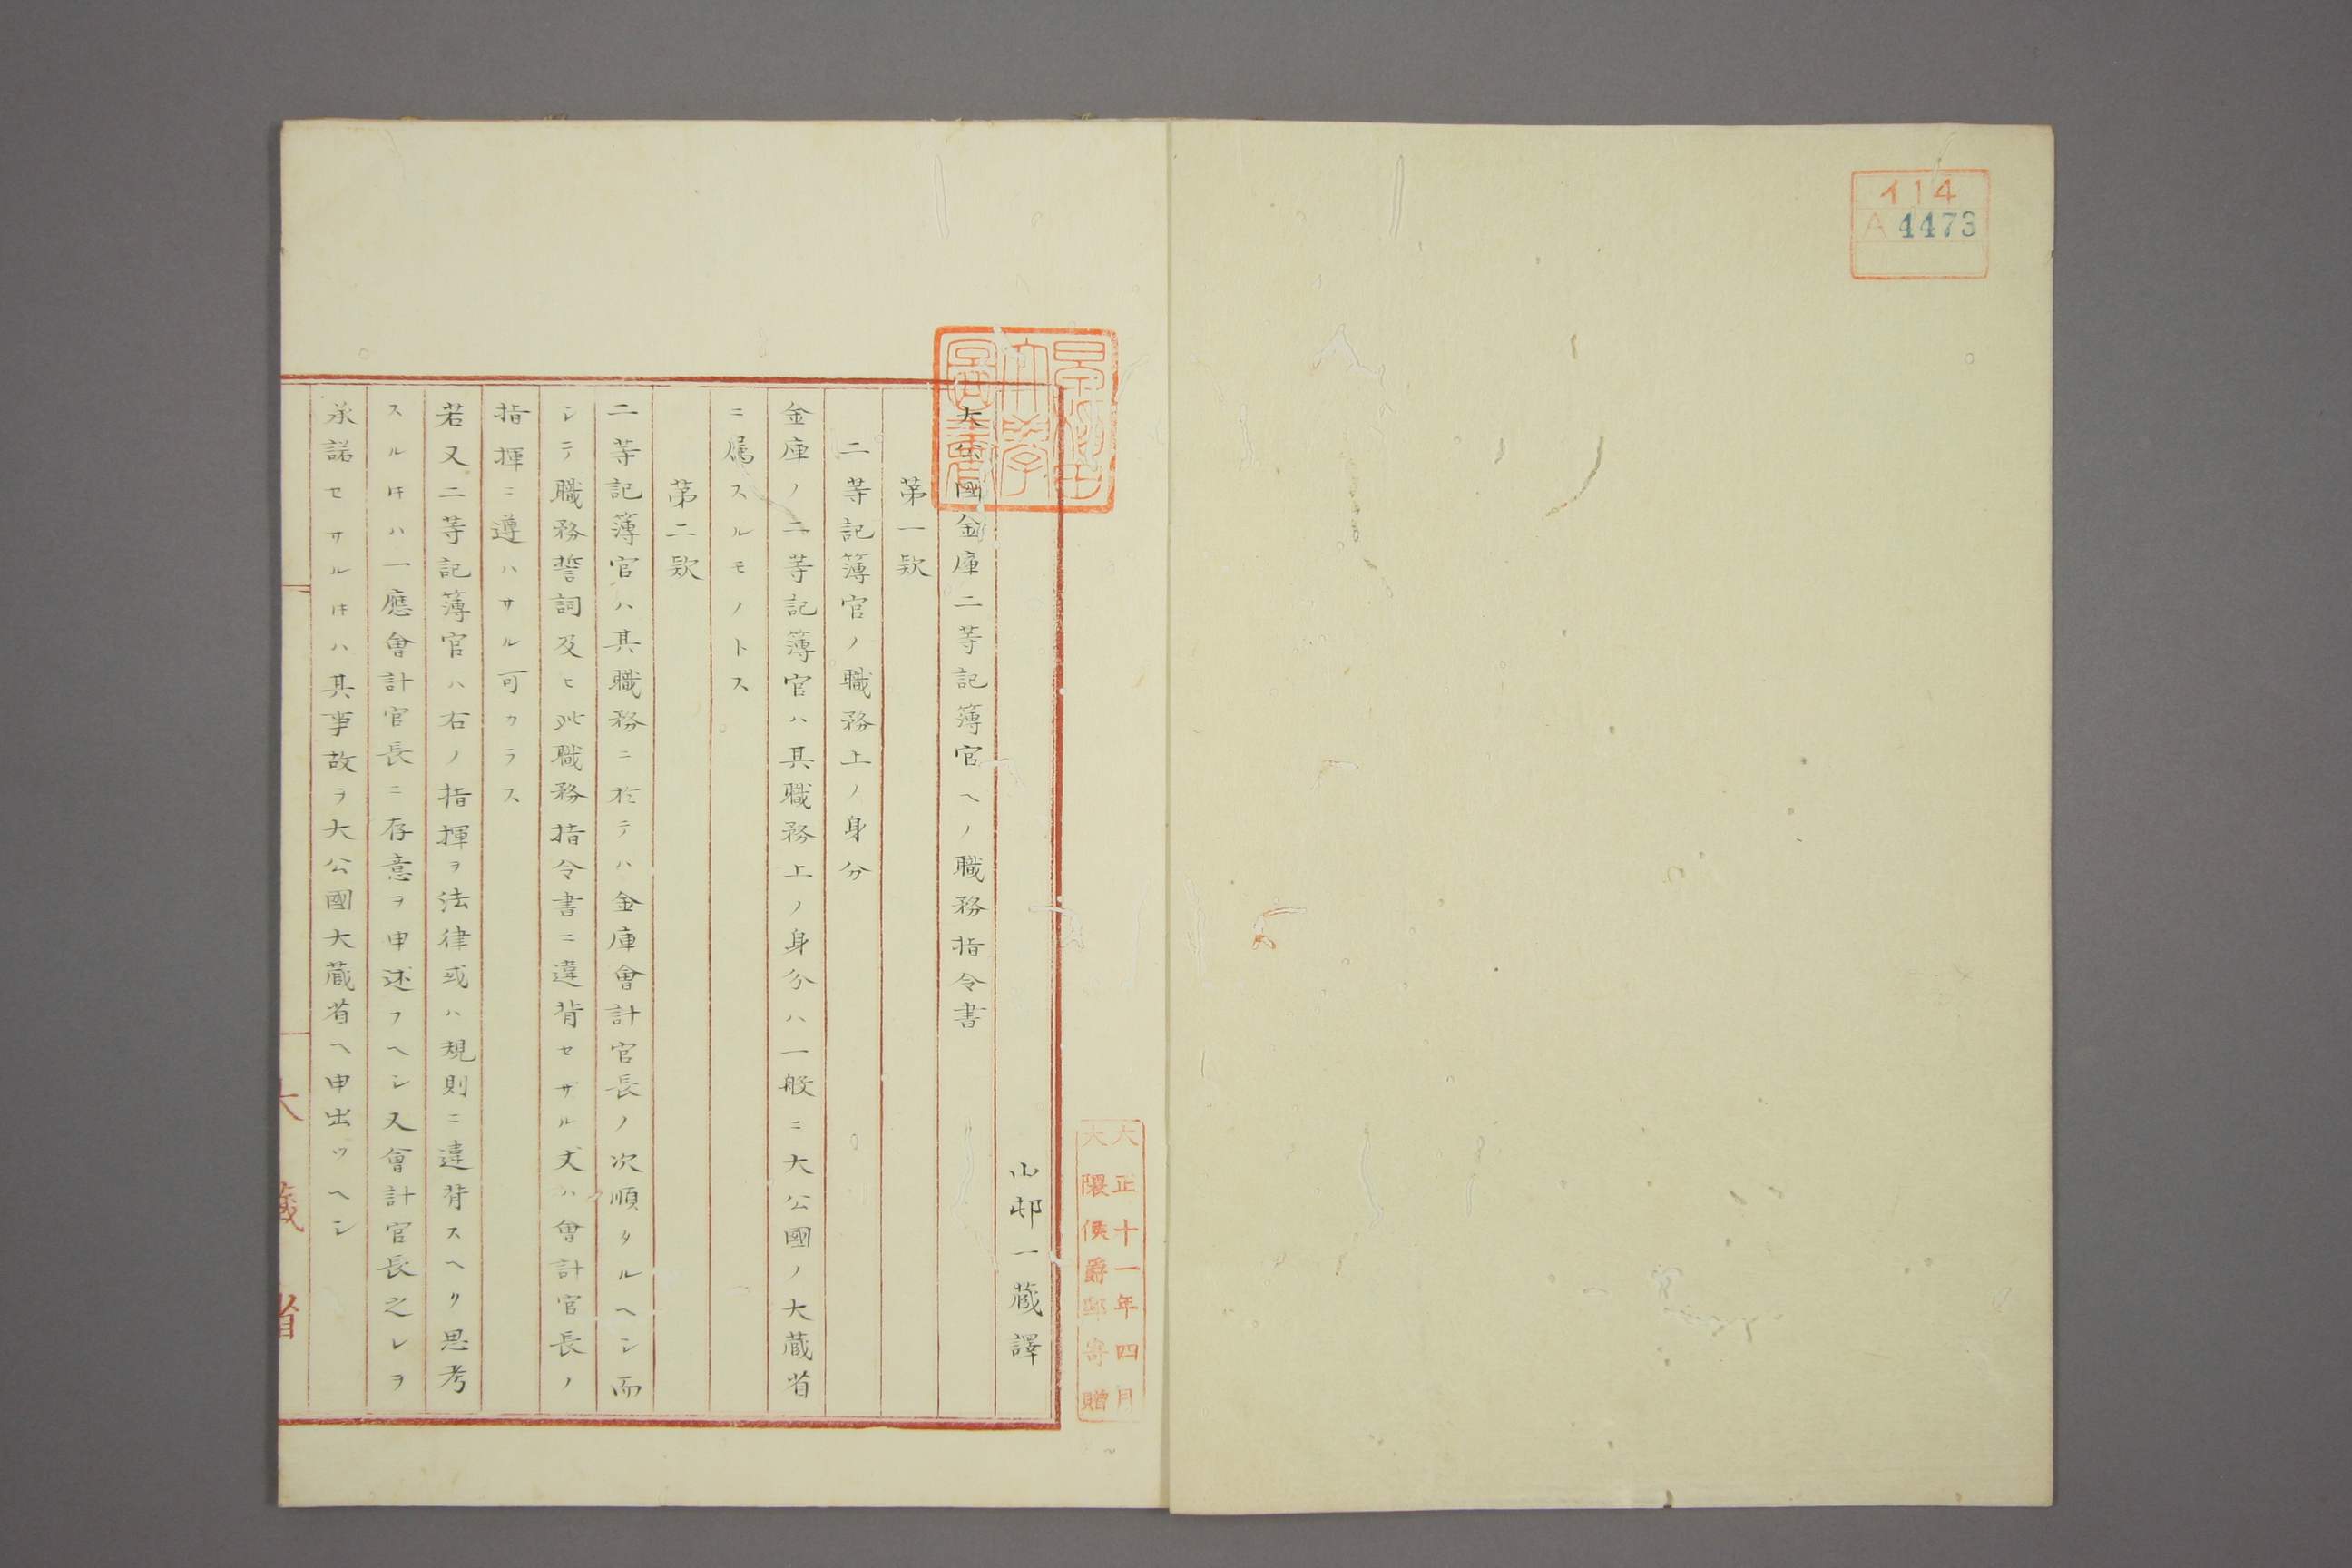 イ14
A 4473
大正十一年四月
大隈侯爵邸寄贈
山邨一蔵譯
大公國金庫二等記簿官ヘノ職務指令書
第一欵
二等記簿官ノ職務上ノ身分
金庫ノ二等記簿官ハ其職務上ノ身分ハ一般ニ大公國ノ大蔵省
ニ属スルモノトス
第二欵
二等記簿官ハ其職務ニ於テハ金庫會計官長ノ次順タルヘシ而
シテ職務誓詞及ヒ此職務指令書ニ違背セザル丈ハ會計官長ノ
指揮ニ遵ハサル可カラス
若又二等記簿官ハ右ノ指揮ヲ法律或ハ規則ニ違背スヘリ思考
スル𪜈ハ一應會計官長ニ存意ヲ申述フヘシ又會計官長之レヲ
承諾セサル𪜈ハ其事故ヲ大公國大蔵省ヘ申出ツヘシ
大藏省